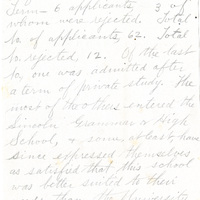 Term - 6 applicants, 3 of
whom were rejected. Total
No. of applicants, 62. Total
No. rejected, 12. Of the last
No. one was admitted after
a term of private study. The
most of the others entered the
Lincoln Grammar & High
School, & some, at least, have
since expressed themselves
as satisfied that this school
was better suited to their
than the University